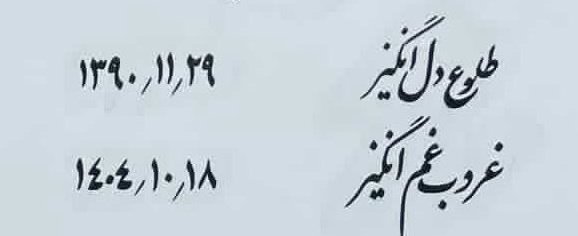 طلوع دل انگیز ۱۳۹۰/۱۱/۲۹
غروب غم انگیز ۱٤۰٤/۱۰/۱۸